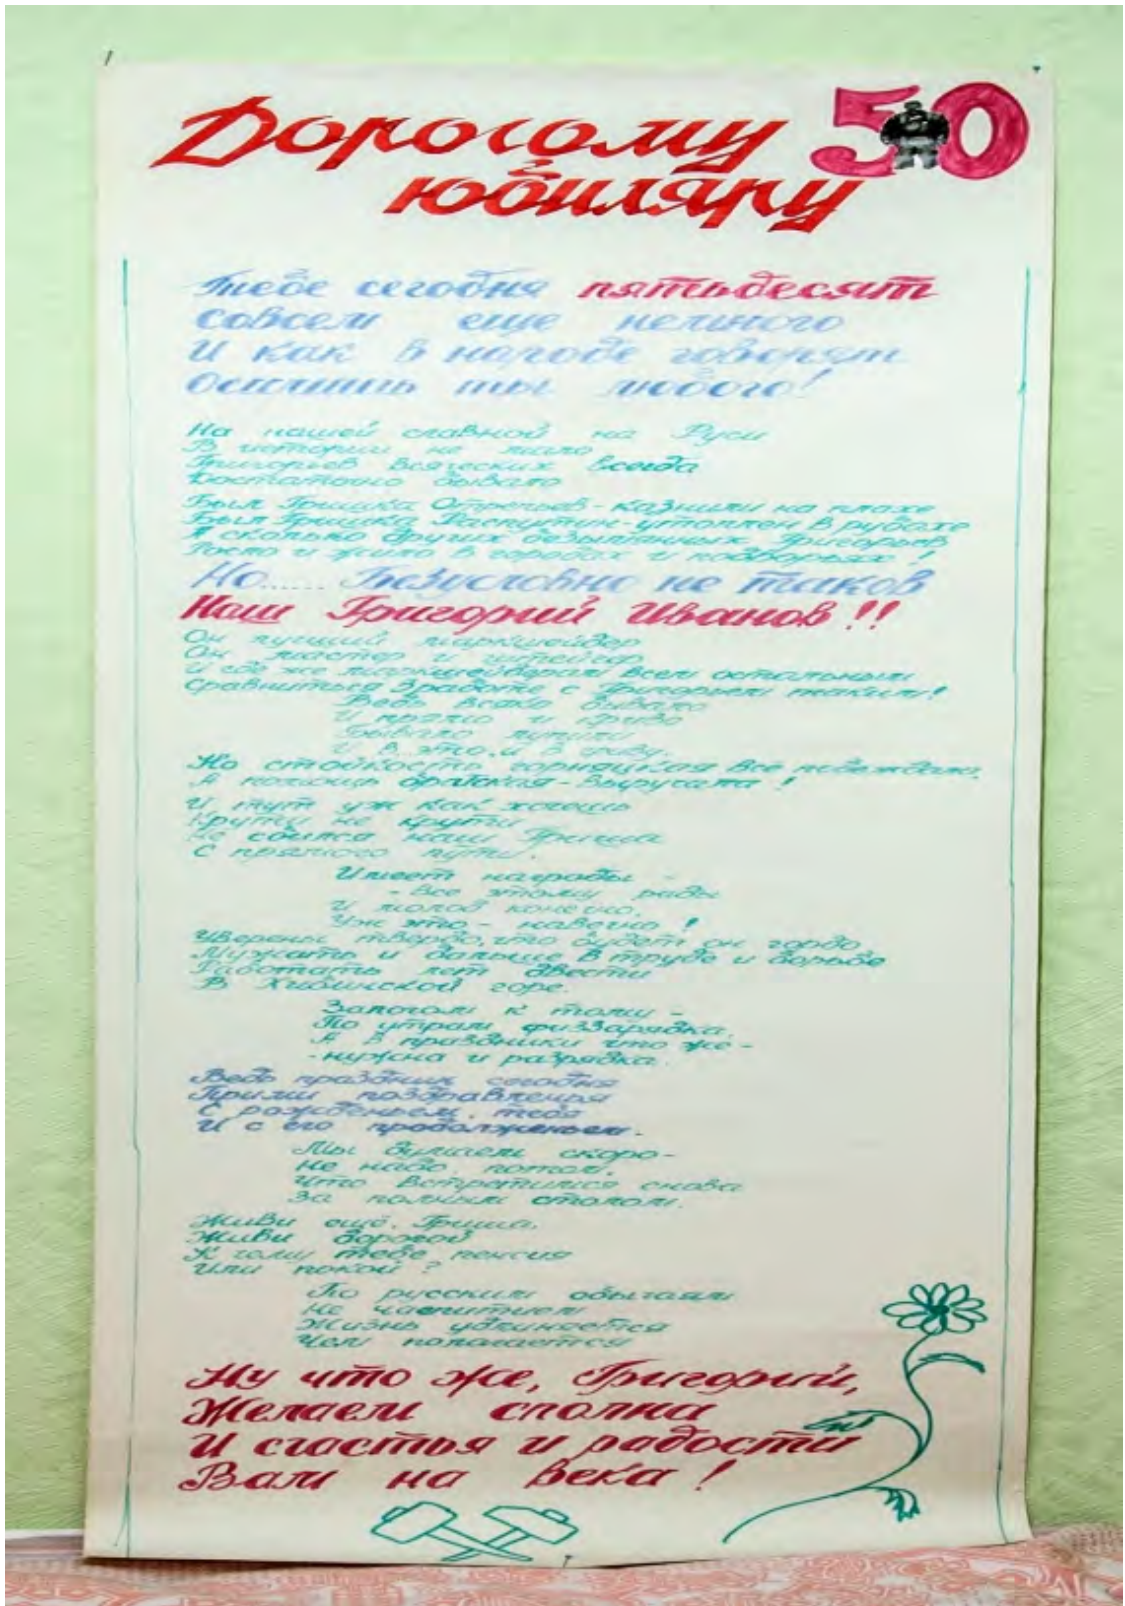 Дорогому 50
юбиляру
Тебе сегодня пятьдесят
Совсем еще немного
И как в народе говорят
Осилишь ты любого!
На нашей славной на Руси
В истории не мало
Григорьев всяческих всегда
Достаточно бывало
Был Гришка Отрепьев - казнили на плахе
Был Гришка Распутин - утоплен в рубахе
А сколько других безымянных Григорьев
Росло и жило в городах и подворьях!
Но...... Безусловно не таков
Наш Григорий Иванов!!
Он лучший маркшейдер
Он мастер и
И где же маркшейдерам всем остальным
Сравниться в работе с Григорьем таким!
Ведь всяко бывало
И прямо и криво
Бывало лупили
И в это, и в гриву.
Но стойкость горняцкая все побеждала,
А помощь братская - выручала!
И тут уж как хочешь
Крути не крути
Не сбился наш Гриша
С прямого пути.
Имеет награды -
- Все этому рады
И молод конечно,
Уж это - навечно!
Уверены твердо, что будет он гордо
Мужать и дальше в труде и борьбе
Работать лет двести
В Хибинской горе.
Запомни к тому -
По утрам физзарядка,
А в праздники что же -
- нужна и разрядка.
Ведь праздник сегодня
Прими поздравленья
С рожденьем тебя
И с его продолженьем.
Мы думаем скоро -
Не надо потом,
Что встретимся снова
За полным столом.
Живи ещё, Гриша,
Живи дорогой
К чему тебе пенсия
Или покой?
По русским обычаям
Не чаепитием
Жизнь удлиняется
Чем полагается
Ну что же, Григорий,
Желаем сполна
И счастья и радости
Вам на века!